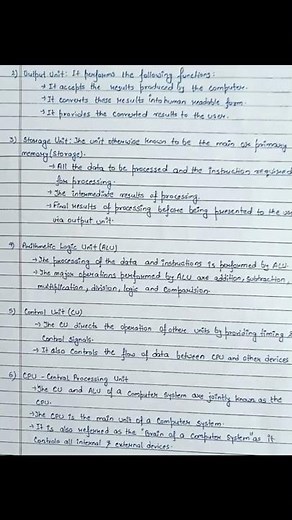 2) Output Unit: It performs the following functions:
→ It accepts the results produced by the computer.
→ It converts these results into human readable form.
→ It provides the converted results to the user.
3) Storage Unit: The unit otherwise known to be the main or primary
memory (storage).
→ All the data to be processed and the instruction required
for processing.
→ The intermediate results of processing.
→ Final results of processing before being presented to the user
via output unit.
4) Arithmetic Logic Unit (ALU)
→ The processing of the data and instructions is performed by ALU.
→ The major operations performed by ALU are addition, subtraction,
multiplication, division, logic and comparison.
5) Control Unit (CU)
→ The CU directs the operation of other units by providing timing &
control signals.
→ It also controls the flow of data between CPU and other devices
6) CPU - Central Processing Unit
→ The CU and ALU of a computer system are jointly known as the
CPU.
→ The CPU is the main unit of a computer system
→ It is also referred as the "Brain of a computer system" as it
controls all internal & external devices.